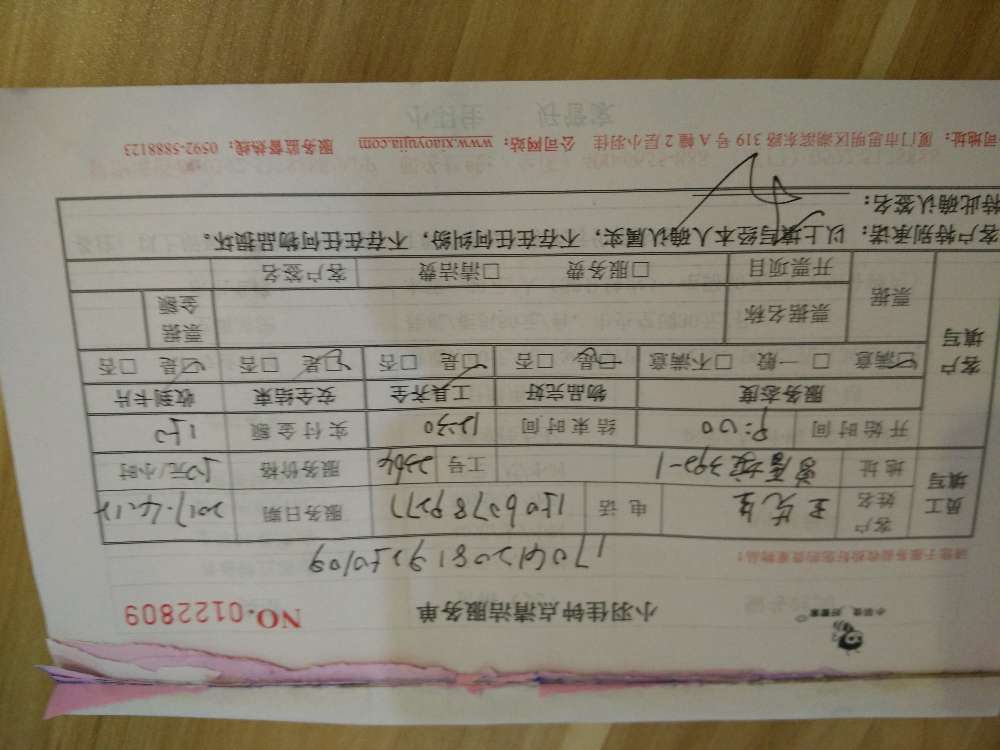 小羽佳 好管家
小羽佳钟点清洁服务单 NO.0122809
请您于服务前收拾好您的贵重物品:
员工填写 客户姓名 王先生 电话 服务日期
地址 工号 2364 服务价格 50元/小时
开始时间 结束时间 12:30 实付金额
客户填写 服务态度 物品完好 工具齐全 安全结束 收到卡片
☑满意 □一般 □不满意 ☑是 □否 ☑是 □否 ☑是 □否 ☑是 □否
票据 票据名称 票据金额
开票项目 □服务费 □清洁费 客户签名
客户特别承诺: 以上填写经本人确认属实,不存在任何纠纷,不存在任何物品损坏。
特此确认签名:
司地址: 厦门市思明区湖滨东路 319 号 A 幢 2 层小羽佳 公司网站: www.xiaoyujia.com 服务监督热线: 0592-5888123